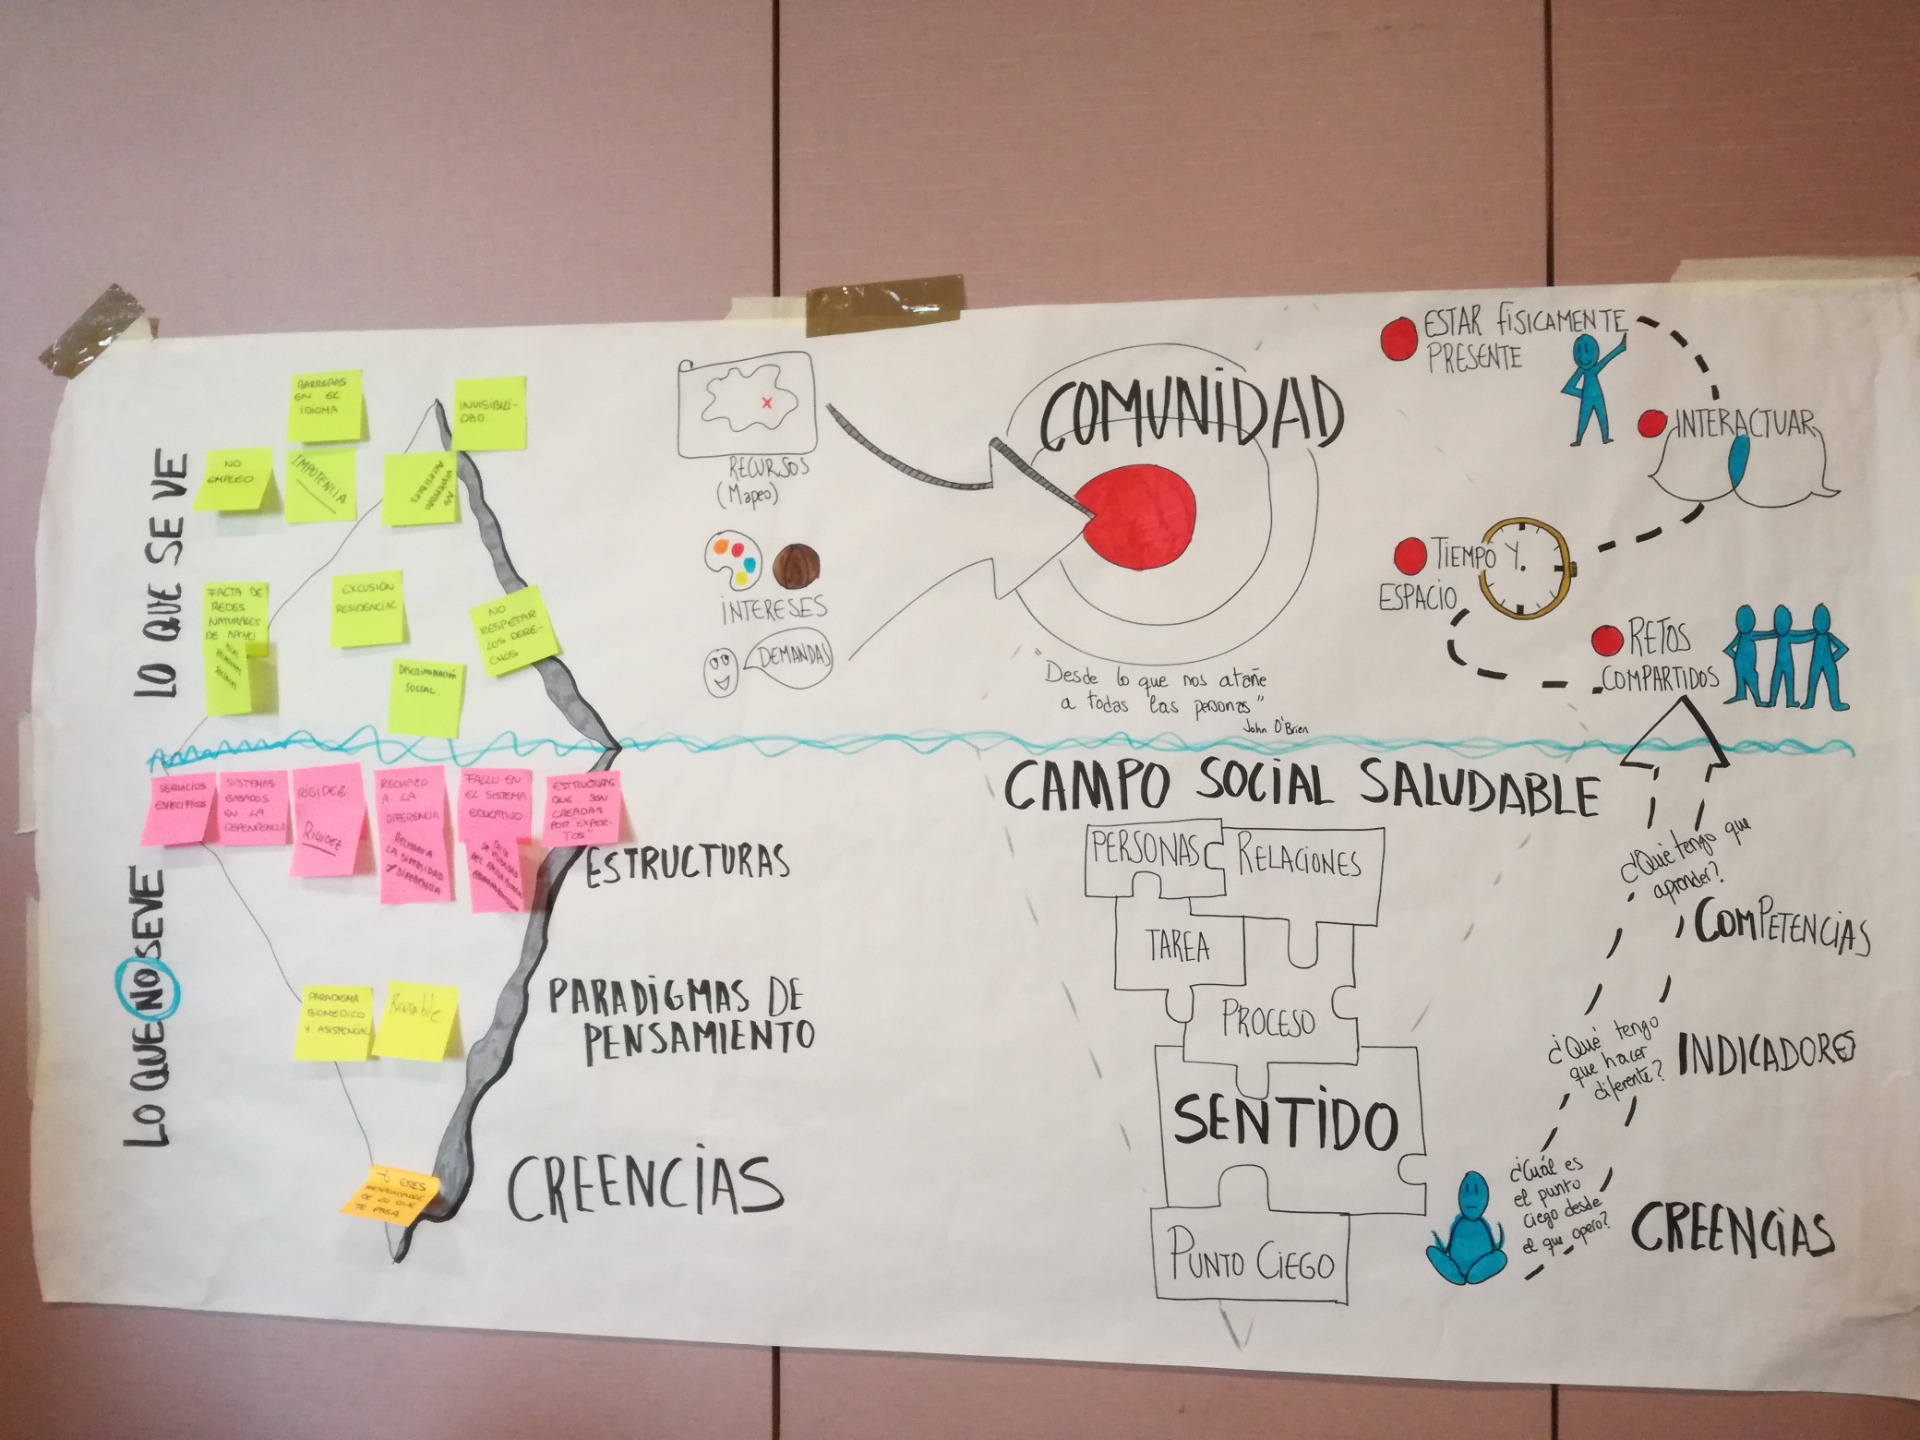 LO QUE SE VE
BARRERAS
EN EL
IDIOMA
INVISIBILI-
DAD
NO
EMPLEO
IMPOTENCIA
NO
VIVIENDAS
ACCESIBLES
FALTA DE
REDES
NATURALES
DE APOYO
EXCUSIÓN
RESIDENCIAL
NO
RESPETAR
LOS DERE-
CHOS
DISCRIMINACIÓN
SOCIAL.
RECURSOS
(Mapeo)
INTERESES
DEMANDAS
COMUNIDAD
"Desde lo que nos atañe
a todas las personas"
John O'Brien
ESTAR FÍSICAMENTE
PRESENTE
INTERACTUAR
TIEMPO Y
ESPACIO
RETOS
COMPARTIDOS
LO QUE NO SE VE
SERVICIOS
ESPECÍFICOS
SISTEMAS
BASADOS
EN LA
DEPENDENCIA
RIGIDEZ
RIGIDEZ
RECHAZO
A LA
DIFERENCIA
RECHAZO A
LA DIVERSIDAD
Y DIFERENCIA
FALLO EN
EL SISTEMA
EDUCATIVO
ESTRUCTURAS
QUE SON
CREADAS
POR EXPER-
TOS"
ESTRUCTURAS
PARADIGMA
BIOMÉDICO
Y ASISTENCIAL
Rentable
PARADIGMAS DE
PENSAMIENTO
TÚ ERES
RESPONSABLE
DE LO QUE
TE PASA
CREENCIAS
CAMPO SOCIAL SALUDABLE
PERSONAS
RELACIONES
TAREA
PROCESO
SENTIDO
PUNTO CIEGO
¿Qué tengo que
aprender?
COMPETENCIAS
¿Qué tengo
que hacer
diferente?
INDICADORES
¿Cuál es
el punto
ciego desde
el que opero?
CREENCIAS